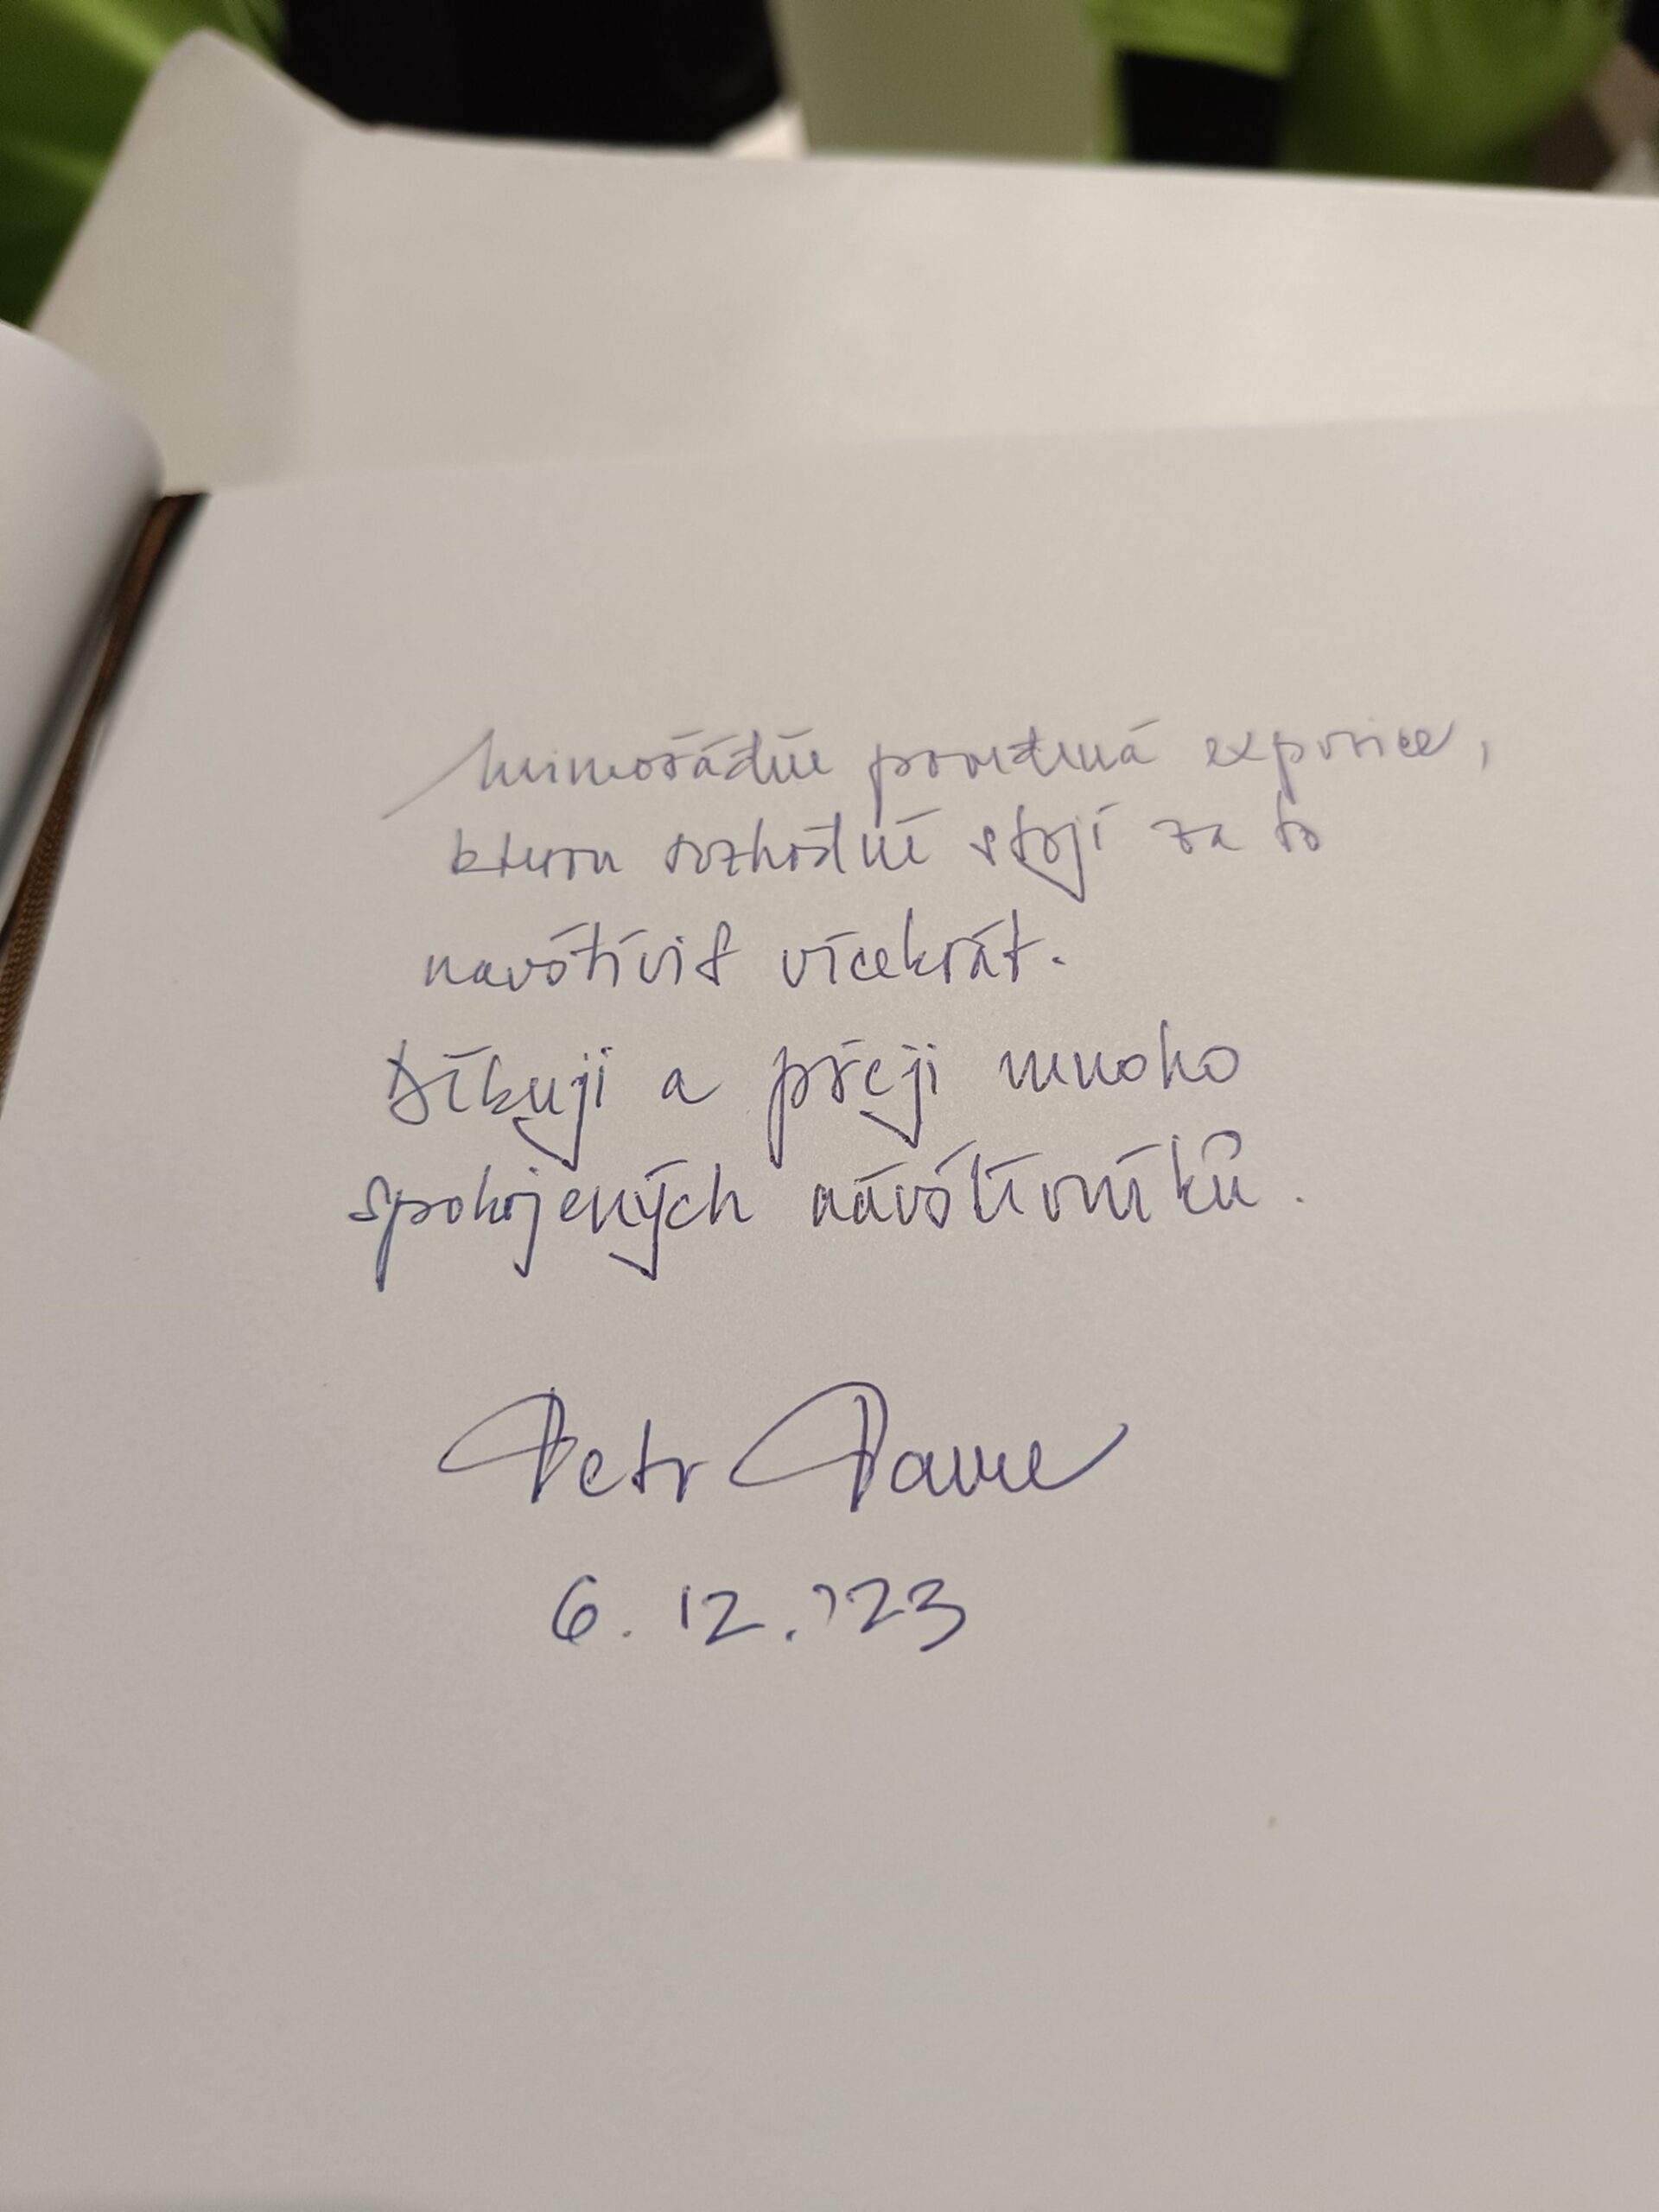 Mimořádně povedená expozice,
kterou rozhodně stojí za to
navštívit vícekrát.
Děkuji a přeji mnoho
spokojených návštěvníků.
Petr Pavel
6. 12. '23